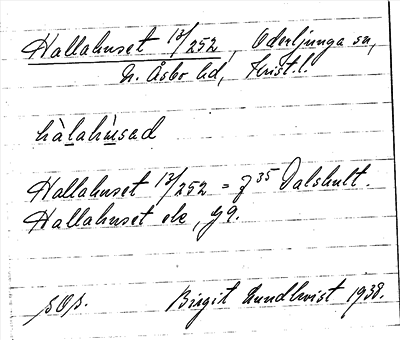 Hallahuset 13/252, Oderljunga sn,
N. Åsbo hd, Krist. l.
hàlahùsad
Hallahuset 13/252 = 35 Dalshult.
Hallahuset ek,
Birgit Lundkvist 1938.